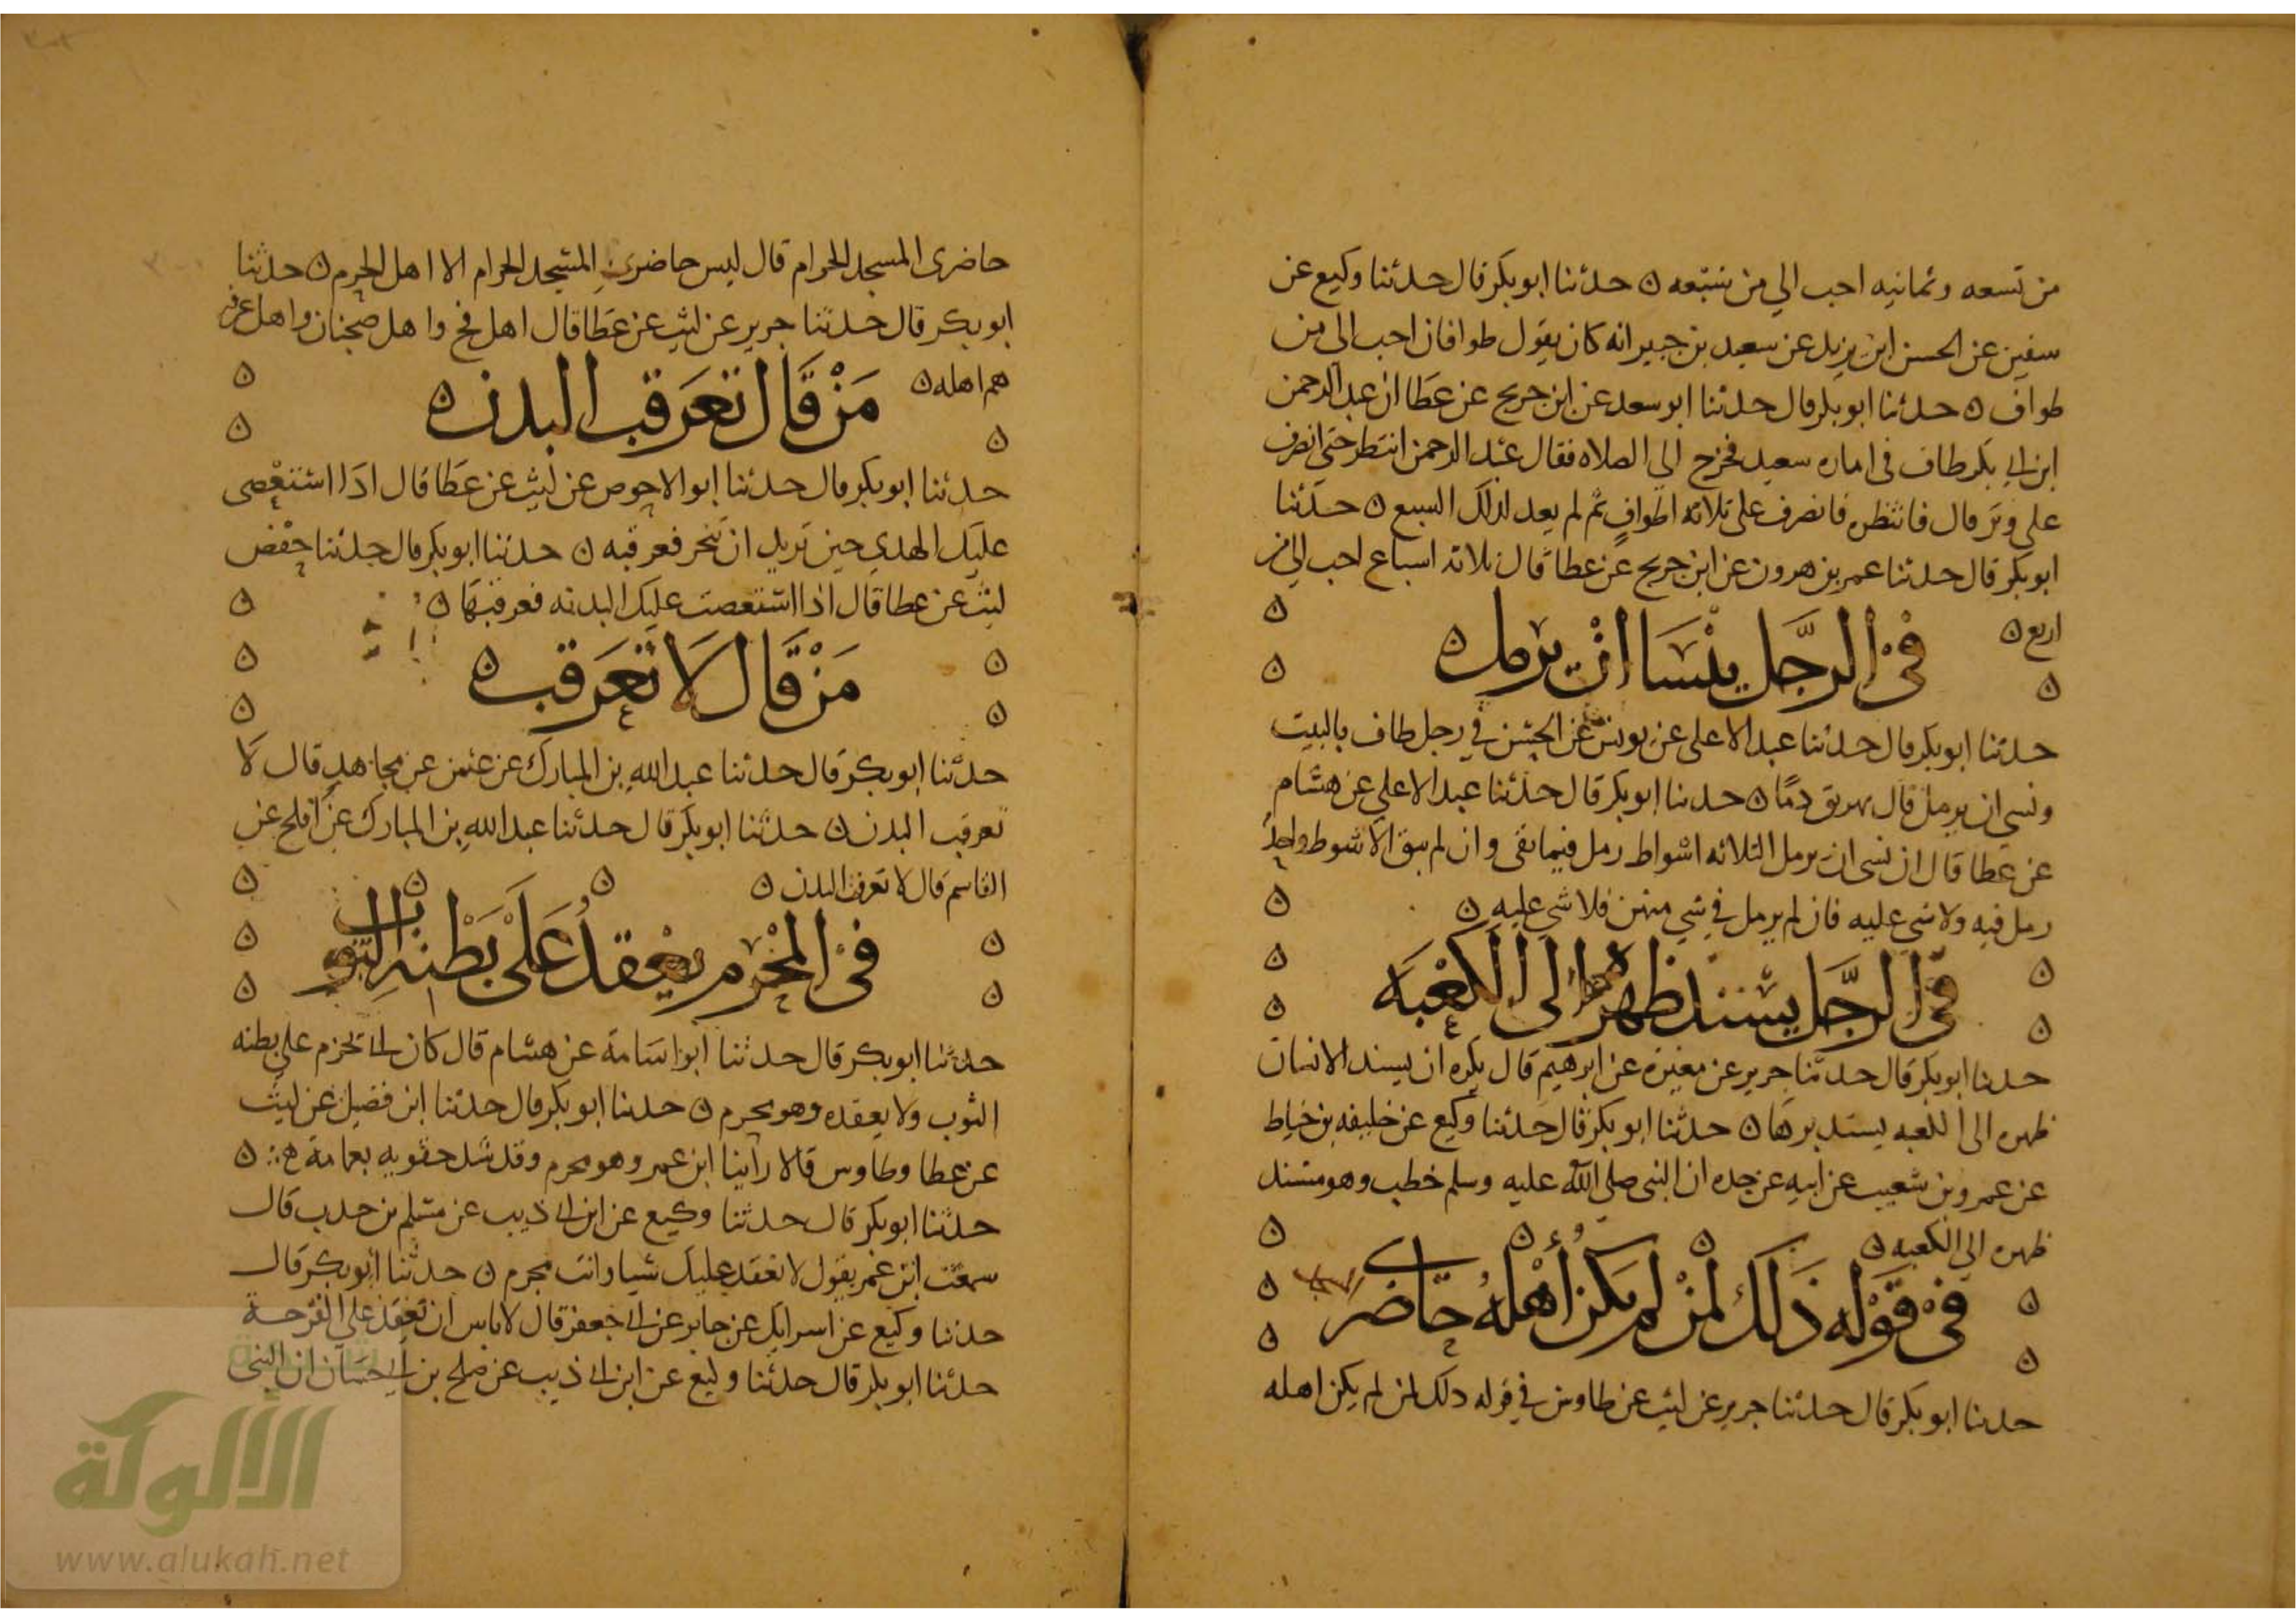 من تسعه وثمانيه احب الي من سبعه ه حدثنا ابو بكر قال حدثنا وكيع عن
سفين عن الحسن ابن يزيد عن سعيد بن جبير انه كان يقول طوافان احب الي من
طواف ه حدثنا ابو بكر قال حدثنا ابو سعد عن ابن جريج عن عطا ان عبد الرحمن
ابن ابي بكر طاف في اماره سعيد فخرج الي الصلاه فقال عبد الرحمن انتظر حتى انصرف
على وتر قال فانتظره فانصرف على ثلاثه اطواف ثم لم يعد لذلك السبع ه حدثنا
ابو بكر قال حدثنا عمر بن هرون عن ابن جريج عن عطا قال ثلاثه اسباع احب الي من
اربع ه
في الرجل ينسا ان يرمل ه
حدثنا ابو بكر قال حدثنا عبد الاعلى عن يونس عن الحسن في رجل طاف بالبيت
ونسي ان يرمل قال يهريق دما ه حدثنا ابو بكر قال حدثنا عبد الاعلي عن هشام
عن عطا قال ان نسي ان يرمل الثلاثه اشواط رمل فيما بقى وان لم يبق الا شوط واحد
رمل فيه ولا شي عليه فان لم يرمل في شي منهن فلا شي عليه ه
في الرجل يسند ظهره الى الكعبه
حدثنا ابو بكر قال حدثنا جرير عن مغيره عن ابرهيم قال يكره ان يسند الانسان
ظهره الى الكعبه يستدبرها ه حدثنا ابو بكر قال حدثنا وكيع عن خليفه بن خياط
عن عمرو بن شعيب عن ابيه عن جده ان النبي صلى الله عليه وسلم خطب وهو مسند
ظهره الي الكعبه ه
في قوله ذلك لمن لم يكن أهله حاضري
حدثنا ابو بكر قال حدثنا جرير عن ليث عن طاوس في قوله ذلك لمن لم يكن اهله
حاضرى المسجد الحرام قال ليس حاضري المسجد الحرام الا اهل الحرم ه حدثنا
ابو بكر قال حدثنا جرير عن ليث عن عطا قال اهل فج واهل ضجنان واهل عرفه
هم اهله ه
من قال تعرقب البدن ه
حدثنا ابو بكر قال حدثنا ابو الاحوص عن ليث عن عطا قال اذا استعصى
عليك الهدي حين تريد ان تنحر فعرقبه ه حدثنا ابو بكر قال حدثنا حفص
ليث عن عطا قال اذا استعصت عليك البدنه فعرقبها ه
من قال لا تعرقب ه
حدثنا ابو بكر قال حدثنا عبد الله بن المبارك عن عثمن عن مجاهد قال لا
تعرقب البدن ه حدثنا ابو بكر قال حدثنا عبد الله بن المبارك عن افلح عن
القاسم قال لا تعرقب البدن ه
في المحرم يعقد على بطنه الثوب
حدثنا ابو بكر قال حدثنا ابو اسامة عن هشام قال كان ابي تحزم علي بطنه
الثوب ولا يعقده وهو محرم ه حدثنا ابو بكر قال حدثنا ابن فضيل عن ليث
عن عطا وطاوس قالا راينا ابن عمر وهو محرم وقد شد حقويه بعمامة ه
حدثنا ابو بكر قال حدثنا وكيع عن ابن ابي ذيب عن مسلم بن جندب قال
سمعت ابن عمر يقول لا تعقد عليك شيا وانت محرم ه حدثنا أبو بكر قال
حدثنا وكيع عن اسرايل عن جابر عن ابي جعفر قال لا باس ان تعقد علي القرحة
حدثنا ابو بكر قال حدثنا وكيع عن ابن ابي ذيب عن صلح بن ابي حسان ان النبي
الألوكة
www.alukah.net